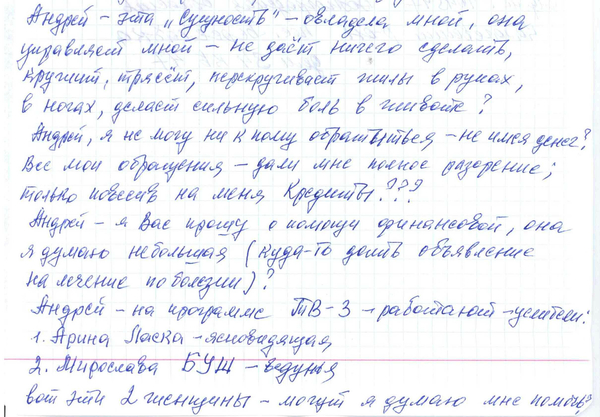 Андрей – эта „Сущность" – овладела мной, она
управляет мной – не даёт ничего сделать,
кружит, трясёт, перекручивает жилы в руках,
в ногах, делает сильную боль в животе?
Андрей, я не могу ни к кому обратиться – не имея денег?
Все мои обращения – дали мне полное разорение;
только повесив на меня Кредиты???
Андрей – я Вас прошу о помощи финансовой, она
я думаю небольшая (куда-то дать объявление
на лечение по болезни)?
Андрей – на программе ТВ-3 – работают – целители:
1. Арина Ласка – ясновидящая,
2. Мирослава БУЖ – ведунья
вот эти 2 женщины – могут я думаю мне помочь?